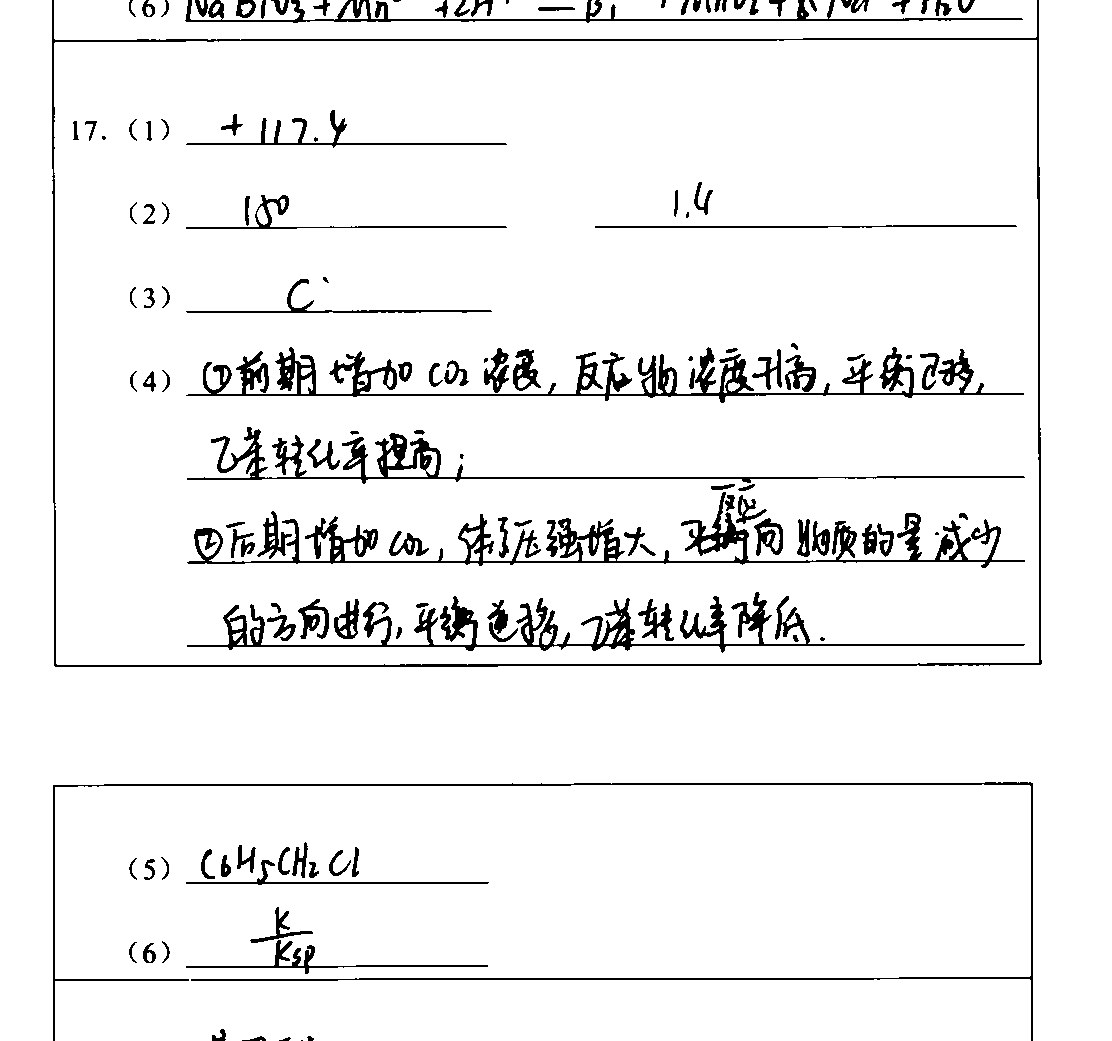 (6) NaBiO3 + Mn + 2H + MnO2 + Na+ + H2O
17. (1) +117.4
(2) 150 1.4
(3) C
(4) ①前期增加CO2浓度, 反应物浓度升高, 平衡正移,
乙苯转化率提高;
反应
②后期增加CO2, 体系压强增大, 向物质的量减少
的方向进行, 平衡逆移, 乙苯转化率降低.
(5) C6H5CH2Cl
(6) K/Ksp